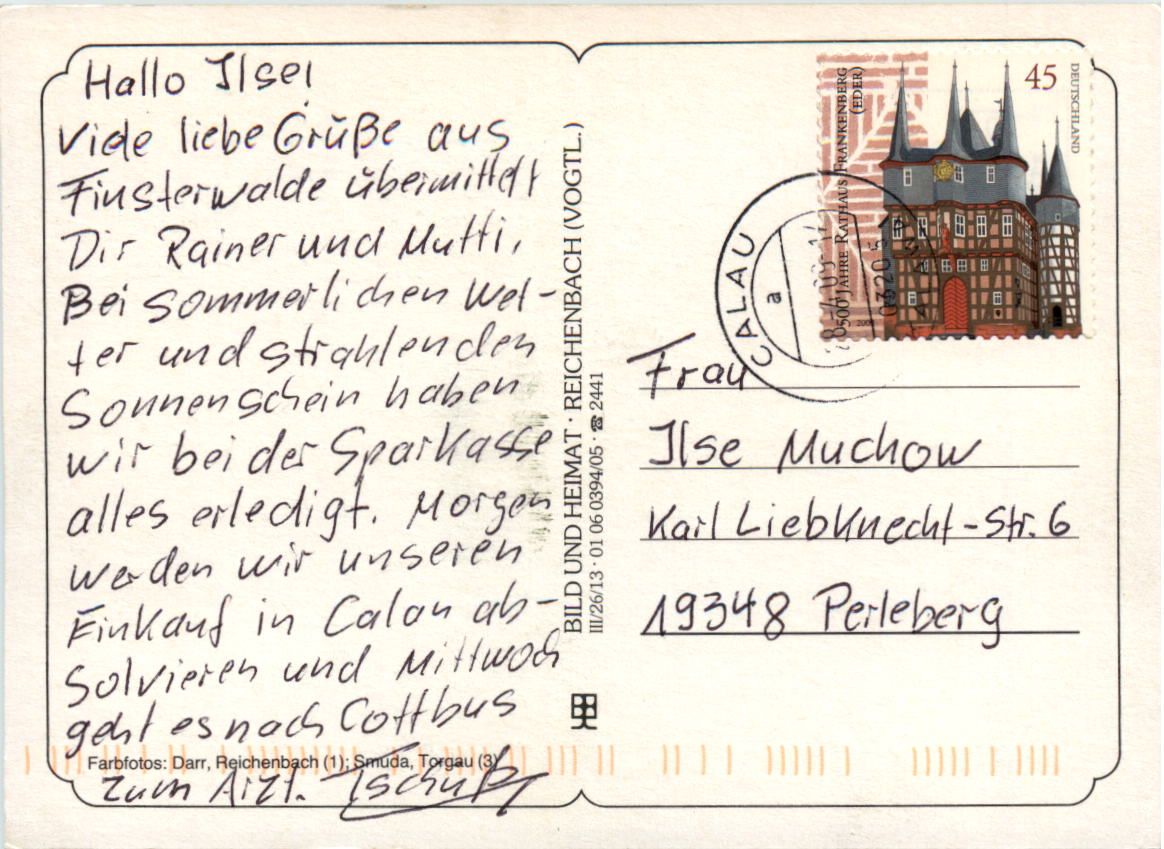 Hallo Ilse!
Viele liebe Grüße aus
Finsterwalde übermittelt
Dir Rainer und Mutti.
Bei sommerlichen Wet-
ter und strahlenden
Sonnenschein haben
wir bei der Sparkasse
alles erledigt. Morgen
werden wir unseren
Einkauf in Calau ab-
solvieren und Mittwoch
geht es nach Cottbus
Farbfotos: Darr, Reichenbach (1); Smuda, Torgau (3)
zum Arzt. Tschüß
BILD UND HEIMAT · REICHENBACH (VOGTL.)
III/26/13 · 01 06 0394/05 · ☎ 2441
500 JAHRE RATHAUS FRANKENBERG
(EDER)
45
DEUTSCHLAND
CALAU
a
03205
Frau
Ilse Muchow
Karl Liebknecht-Str. 6
19348 Perleberg